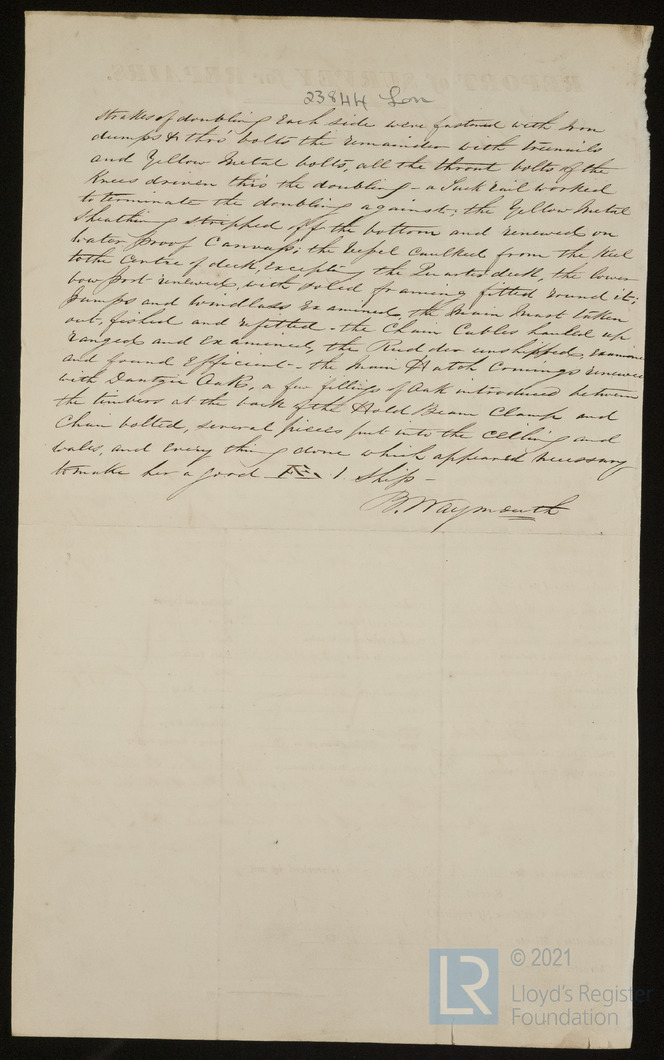 23844 Lon
strakes of doubling each side were fastened with Iron
dumps & thro' bolts the remainder with treenails
and Yellow Metal bolts, all the throat bolts of the
Knees driven thro' the doubling - a Tuck Rail worked
to terminate the doubling against; the Yellow Metal
Sheathing stripped off the bottom and renewed on
water proof Canvass; the Vessel caulked from the Keel
to the Centre of deck, excepting the Quarterdeck, the lower
bow port renewed, with solid framing fitted round it;
pumps and windlass examined, the Main Mast taken
out, fished and refitted - the Chain Cables hauled up
ranged and examined, the Rudder unshipped, examined
and found efficient - the Main Hatch Comings renewed
with Dantzic Oak, a few fillings of Oak introduced between
the timbers at the back of the Hold Beam Clamps and
Chum bolted, several pieces put into the ceiling and
wales, and every thing done which appeared necessary
to make her a good Æ 1 Ship -
B. Waymouth
© 2021
LR
Lloyd's Register
Foundation